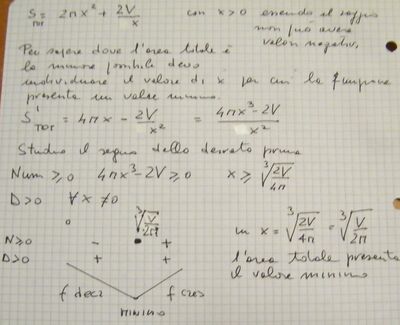 S_TOT = 2πx² + 2V/x con x>0 essendo il raggio
non può avere
valori negativi.
Per sapere dove l'area totale è
la minore possibile devo
individuare il valore di x per cui la funzione
presenta un valore minimo.
S'_TOT = 4πx - 2V/x² = (4πx³-2V)/x²
Studio il segno della derivata prima
Num ≥ 0 4πx³-2V ≥ 0 x ≥ ∛(2V/4π)
D>0 ∀x ≠0
0 ∛(V/2π)
N≥0 - • +
D>0 + +
f decr f cres
MINIMO
in x = ∛(2V/4π) = ∛(V/2π)
l'area totale presenta
il valore minimo